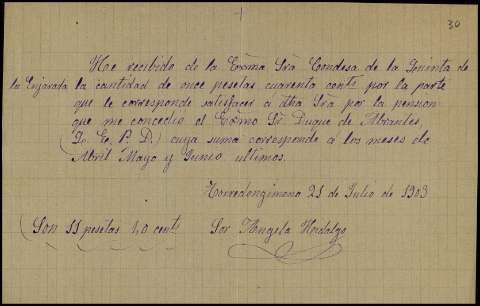 30
He recibido de la Exma Srâ Condesa de la Quinta de
la Enjarada la cantidad de once pesetas cuarenta cents por la parte
que le corresponde satisfacer a dha Srâ por la pension
que me concedio el Exmo Sr Duque de Abrantes,
(Q. E. P. D.) cuya suma corresponde a los meses de
Abril Mayo y Junio ultimos.
Torredongimeno 21 de Julio de 1903
Son 11 pesetas 40 cents
Sor Angela Hidalgo